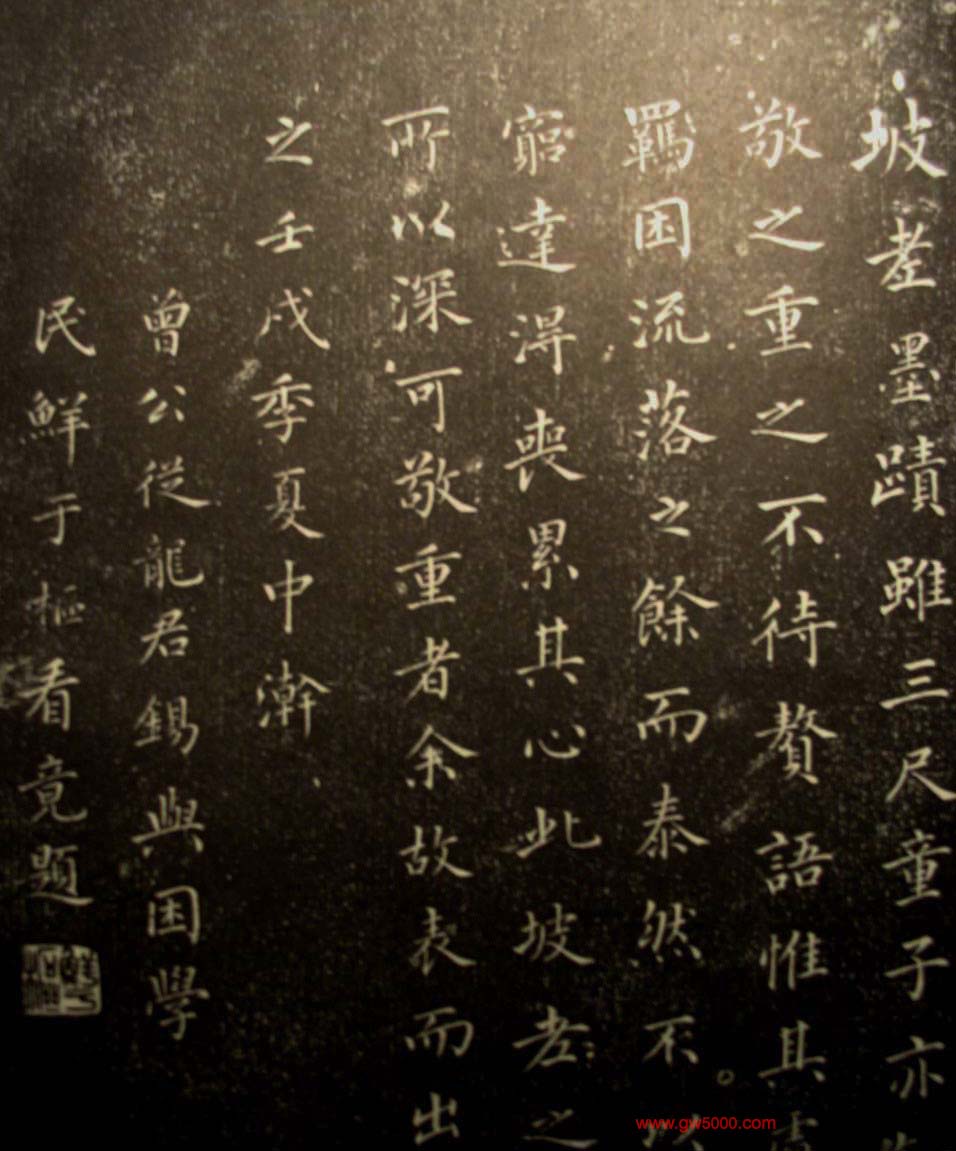 坡老墨蹟雖三尺童子亦
敬之重之不待贅語惟其
羈困流落之餘而泰然不以
窮達得喪累其心此坡老之
所以深可敬重者余故表而出
之壬戌季夏中澣
曾公從龍君錫與困學
民鮮于樞看竟題
www.gw5000.com